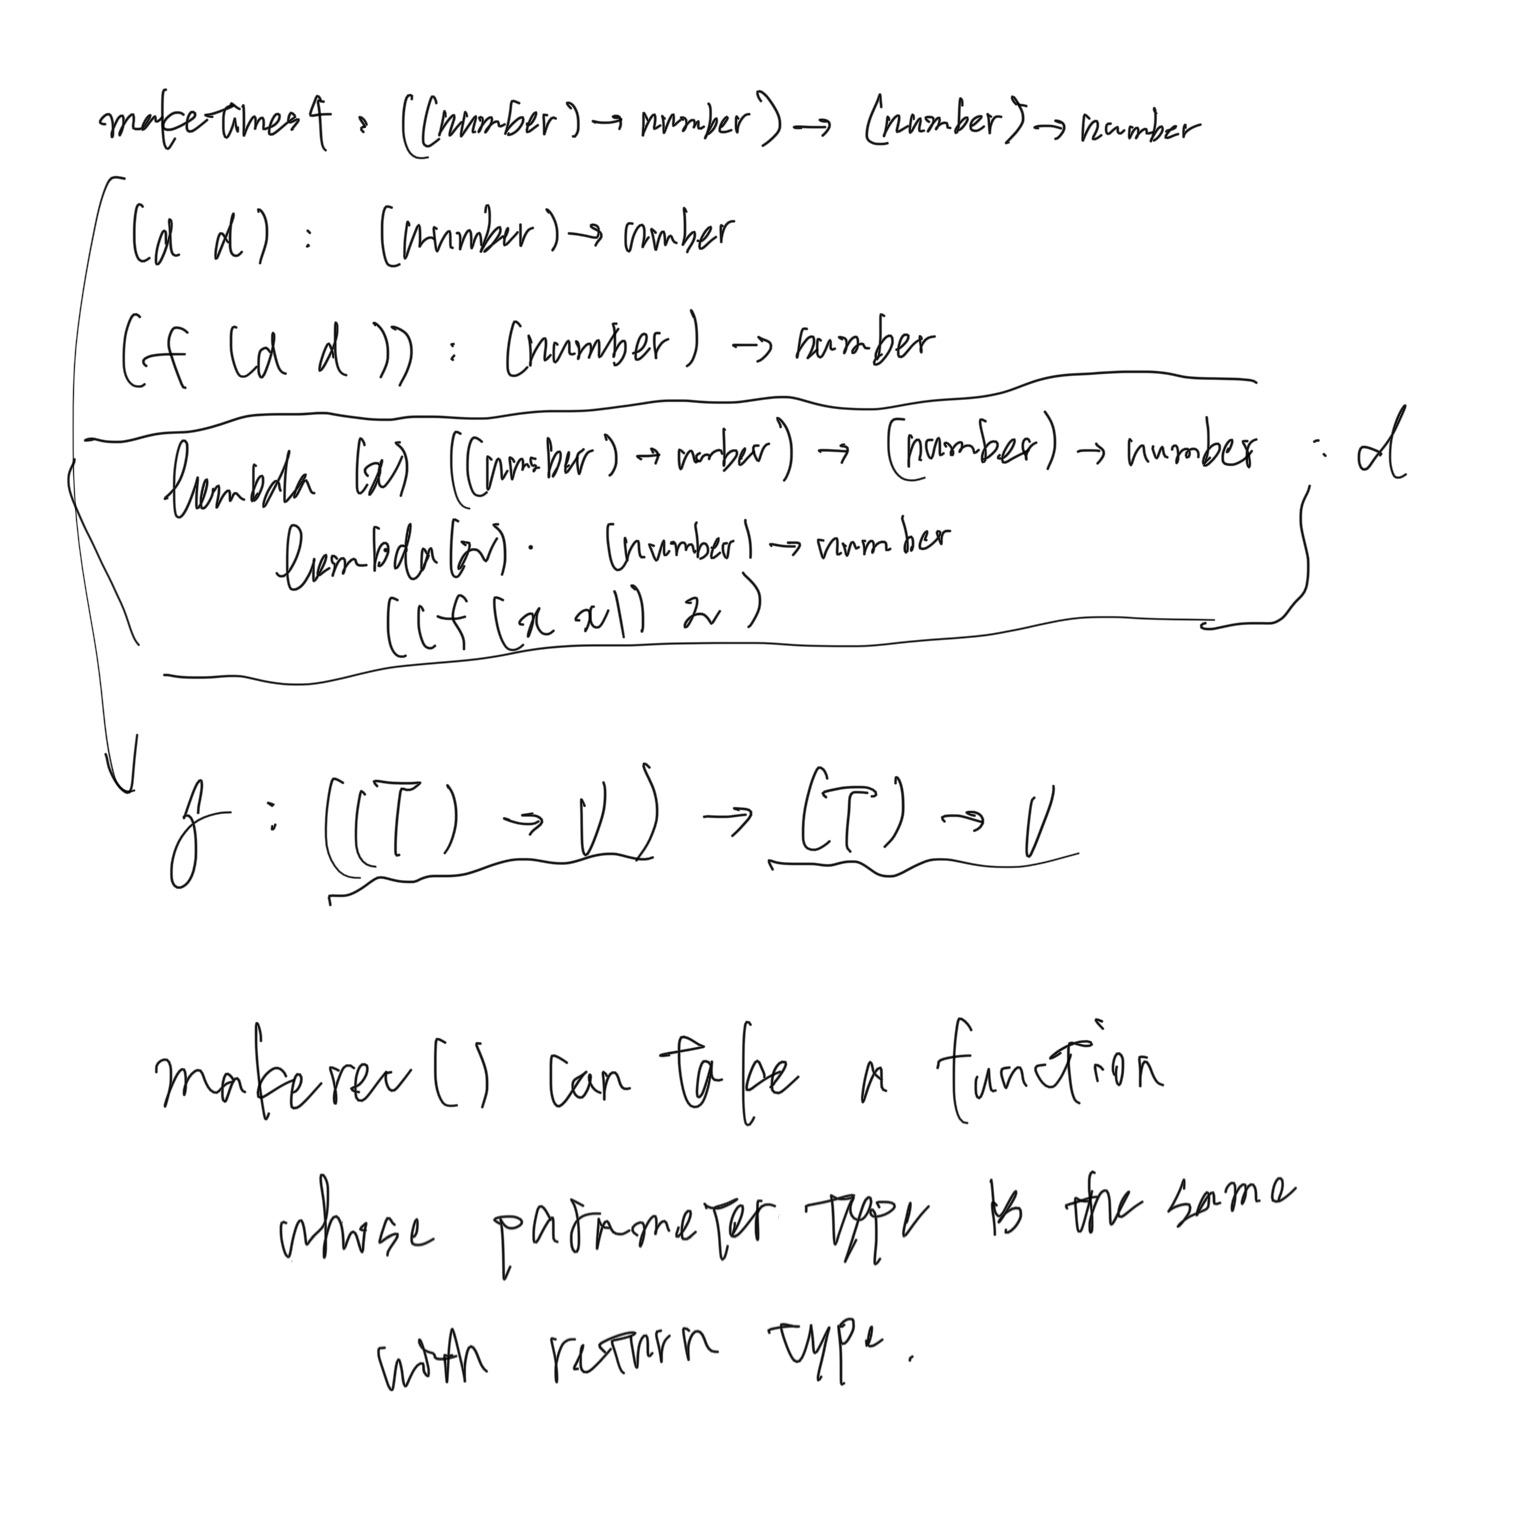 make-times4 : ((number) → number) → (number) → number
(d d) : (number) → number
(f (d d)) : (number) → number
lambda (x) ((number) → number) → (number) → number : d
lambda (z) . (number) → number
((f (x x)) z)
f : ((T) → V) → (T) → V
makerec() can take a function
whose parameter type is the same
with return type.